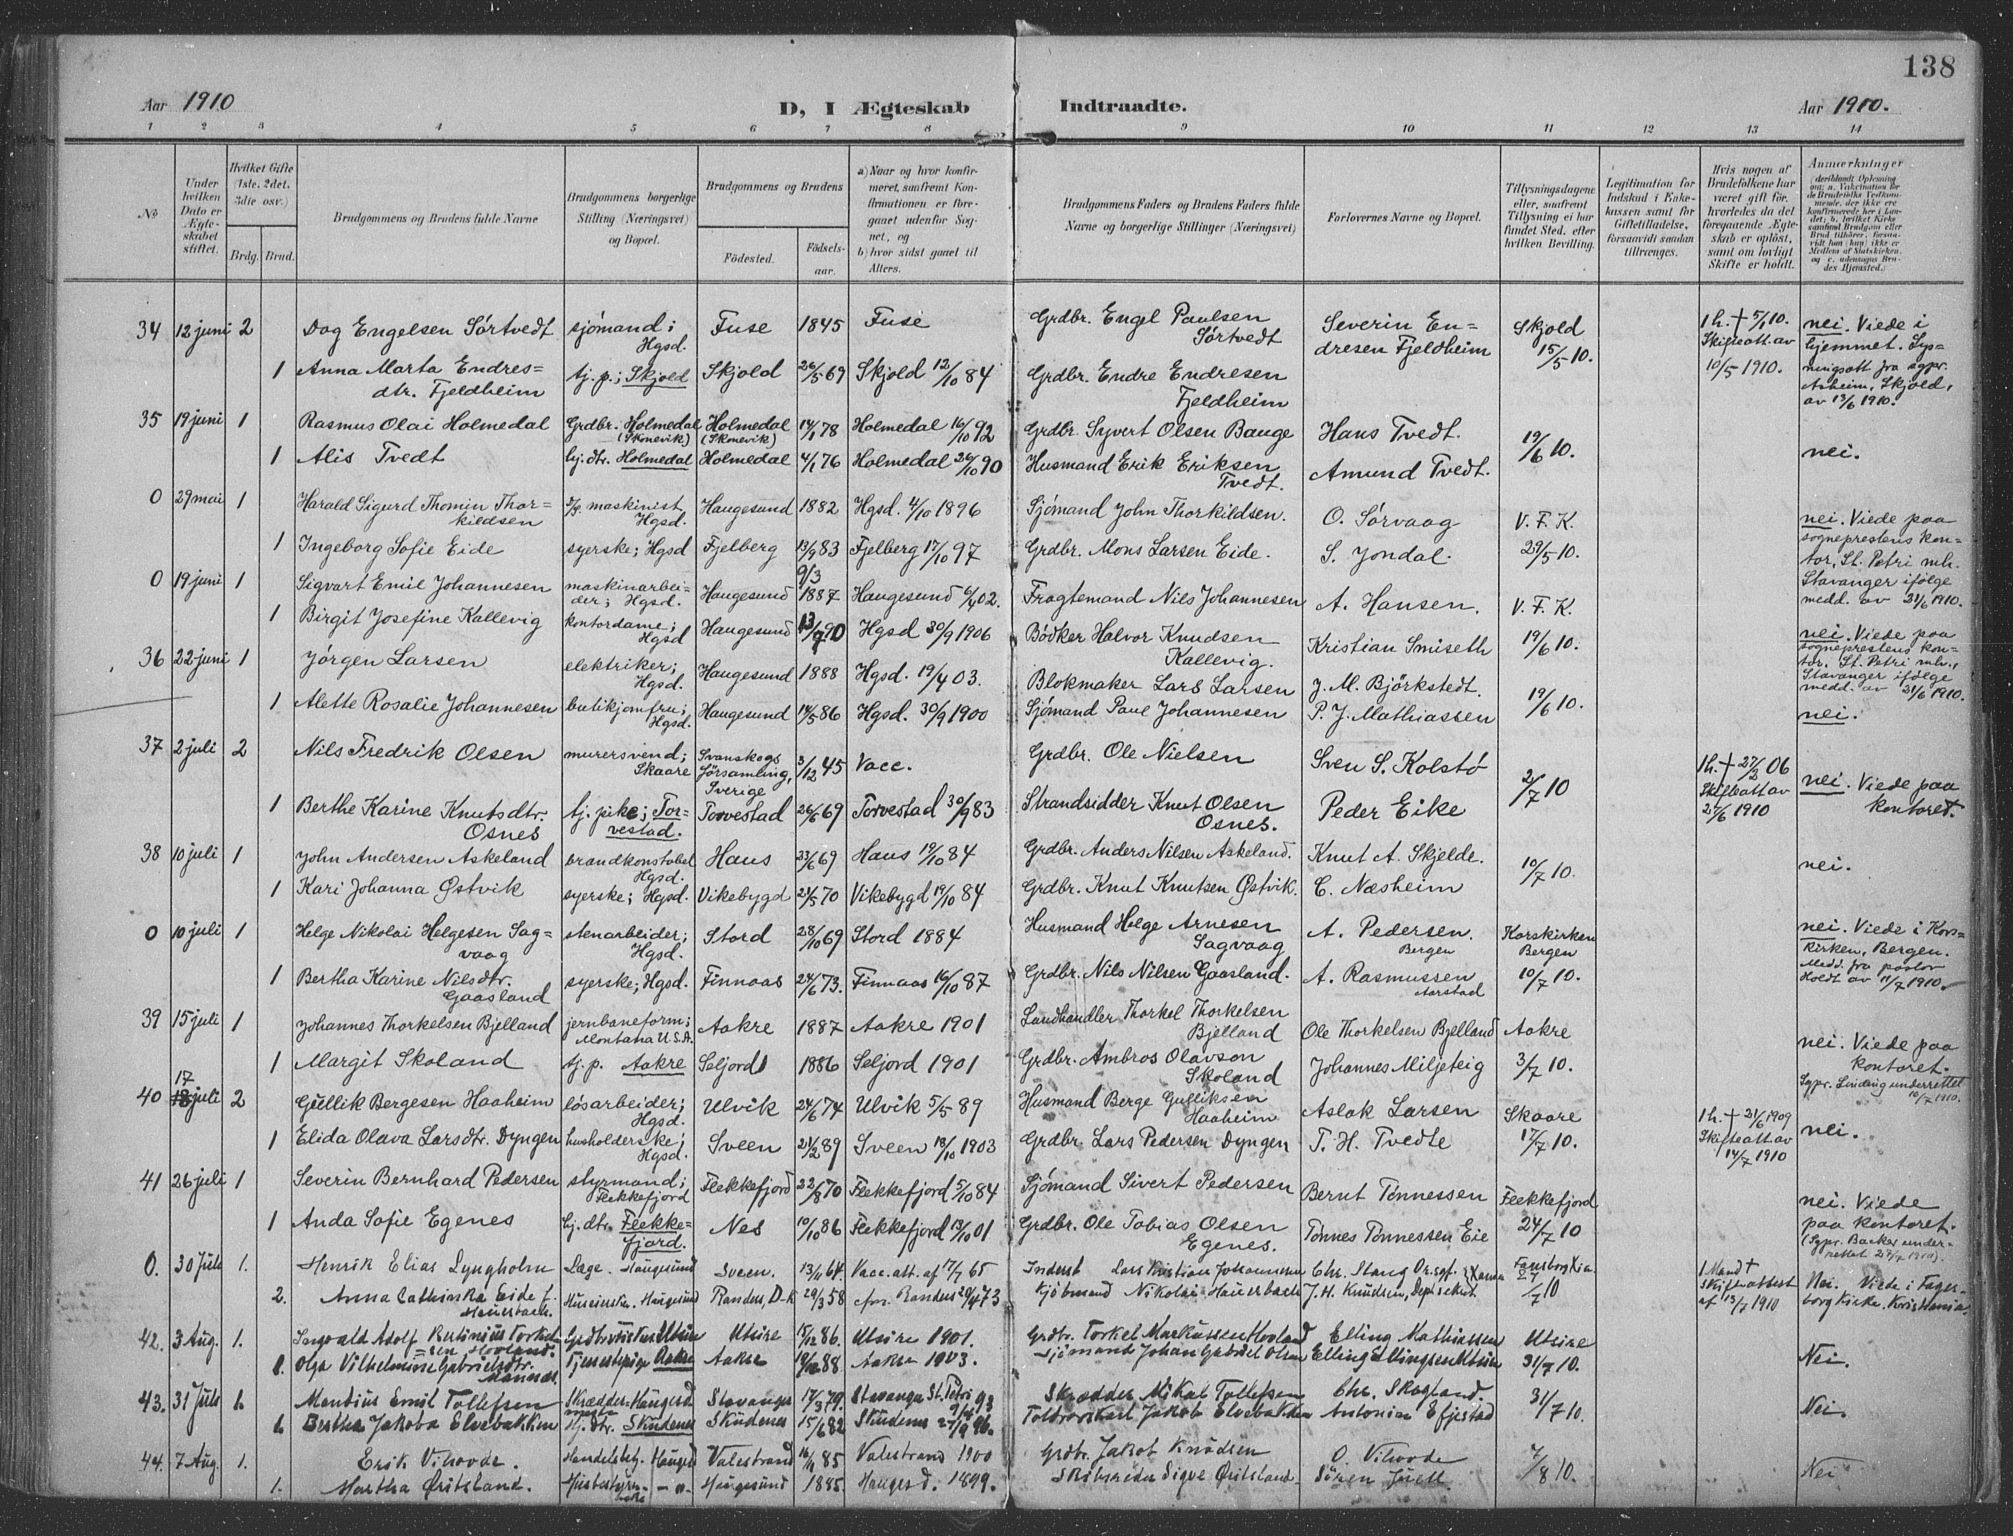 138
Aar 1910 D, I Ægteskab Indtraadte. Aar 1910.
1 2 3 4 5 6 7 8 9 10 11 12 13 14
No
Under hvilken Dato er Ægteskabet stiftet.
Hvilket Gifte (1ste, 2det, 3die osv.)
Brdg. Brud.
Brudgommens og Brudens fulde Navne
Brudgommens borgerlige Stilling (Næringsvei) og Bopæl.
Brudgommens og Brudens
Födested. Födselsaar.
a) Naar og hvor konfirmeret, saafremt Konfirmationen er foregaaet udenfor Sognet, og
b) hvor sidst gaaet til Alters.
Brudgommens Faders og Brudens Faders fulde Navne og borgerlige Stillinger (Næringsvei)
Forlovernes Navne og Bopæl.
Tillysningsdagene eller, saafremt Tillysning ei har fundet Sted, efter hvilken Bevilling.
Legitimation for Indskud i Enkekassen samt for Giftetilladelse, forsaavidt saadan tiltrænges.
Hvis nogen af Brudefolkene har været gift før, hvorledes da det foregaaende Ægteskab er oplöst, samt om lovligt Skifte er holdt.
Anmærkninger
34 12 juni 2 Dag Engelsen Sörtvedt sjömand; Hgsd. Fuse 1845 Fuse Grdbr. Engel Paulsen Sörtvedt Severin Endresen Fjeldheim Skjold 15/5 10. 1 h. + 5/1 10. Skifteatt. av 10/5 1910. nei. Viede i hjemmet. Lysningsatt fra sgpr. Asheim, Skjold, av 13/6 1910.
1 Anna Marta Endresdtr. Fjeldheim tj. p.; Skjold Skjold 26/5 69 Skjold 12/10 84 Grdbr. Endre Endresen Fjeldheim
35 19 juni 1 Rasmus Olai Holmedal Grdbr. Holmedal (Skonevik) Holmedal (Skonevik) 14/1 78 Holmedal 16/10 92 Grdbr. Syvert Olsen Bauge Hans Tvedt. 19/6 10. nei.
1 Alis Tvedt hj. dtr. Holmedal Holmedal 4/1 76 Holmedal 26/10 90 Husmand Erik Eriksen Tvedt. Amund Tvedt.
0 29 mai 1 Harald Sigurd Thomin Thorkildsen maskinist Hgsd. Haugesund 1882 Hgsd. 4/10 1896 Sjömand John Thorkildsen. O. Sørvaag V. F. K. 29/5 10. nei. Viede paa sogneprestens kontor, St. Petri mh. Stavanger ifölge medd. av 21/6 1910.
1 Ingeborg Sofie Eide syerske; Hgsd Fjelberg 13/9 83 Fjelberg 17/10 97 Grdbr. Mons Larsen Eide. S. Jondal.
0 19 juni 1 Sigvart Emil Johannesen maskinarbeider; Hgsd. Haugesund 9/3 1887 Haugesund 6/4 02. Fragtemand Nils Johannesen A. Hansen. V. F. K. 19/6 10. nei. Viede paa sogneprestens kontor. St. Petri mh., Stavanger ifölge medd. av 21/6 1910.
1 Birgit Josefine Kallevig kontordame; Hgsd Haugesund 13/7 90 Hgsd 30/9 1906 Bödker Halvor Knudsen Kallevig. Kristian Smiseth
36 22 juni 1 Jörgen Larsen elektriker; Hgsd. Haugesund 1888 Hgsd. 19/4 03. Blokmaker Lars Larsen J. M. Björkstedt. 19/6 10. nei.
1 Alette Rosalie Johannesen butikjomfru; Hgsd. Haugesund 14/5 86 Hgsd. 30/9 1900 Sjömand Paul Johannesen P. J. Mathiassen
37 2 juli 2 Nils Fredrik Olsen murersvend; Skaare Svanskogs församling, Sverige 3/12 45 Vacc. Grdbr. Ole Nielsen Sven S. Kolstø 2/7 10 1 h. + 27/2 06 Skifteatt av 21/6 1910 nei. Viede paa kontoret.
1 Berthe Karine Knutsdtr. Osnes tj. pike; Torvestad. Torvestad 26/6 69 Torvestad 30/9 83 Strandsidder Knut Olsen Osnes. Peder Eike
38 10 juli 1 John Andersen Askeland brandkonstabel Hgsd. Haus 23/6 69 Haus 19/10 84 Grdbr. Anders Nilsen Askeland. Knut A. Skjelde. 10/7 10. nei.
1 Kari Johanna Østvik syerske; Hgsd. Vikebygd 21/5 70 Vikebygd 19/10 84 Grdbr. Knut Knutsen Østvik. C. Næsheim
0 10 juli 1 Helge Nikolai Helgesen Sagvaag stenarbeider; Hgsd. Stord 28/10 69 Stord 1884 Husmand Helge Arnesen Sagvaag A. Pedersen. Bergen Korskirken Bergen 10/7 10. nei. Viede i Korskirken, Bergen. Medd. fra pastor Holdt av 11/7 1910.
1 Bertha Karine Nilsdtr. Gaasland syerske; Hgsd. Finnaas 24/6 73. Finnaas 16/10 87 Grdbr. Nils Nilsen Gaasland. A. Rasmussen Aarstad
39 15 juli 1 Johannes Thorkelsen Bjelland jernbaneform; Montana U.S.A. Aakre 1887 Aakre 1901 Landhandler Thorkel Thorkelsen Bjelland Ole Thorkelsen Bjelland Aakre 3/7 10. nei. Viede paa kontoret. Sgpr. Linding underrettet 16/7 1910.
1 Margit Skoland tj. p. Aakre Seljord 1886 Seljord 1901 Grdbr. Ambros Olavson Skoland Johannes Miljeteig
40 17 juli 2 Gullik Bergesen Haaheim lösarbeider; Hgsd. Ulvik 24/6 74 Ulvik 5/5 89 Husmand Berge Gulliksen Haaheim Aslak Larsen Skaare 17/7 10. 1 h. + 21/6 1909 Skifteatt av 14/7 1910 nei.
1 Elida Olava Larsdtr. Dyngen husholderske; Hgsd. Sveen 21/2 89 Sveen 18/10 1903 Grdbr. Lars Pedersen Dyngen T. H. Tvedte
41 26 juli 1 Severin Bernhard Pedersen styrmand; Flekkefjord Flekkefjord 22/8 70 Flekkefjord 5/10 84 Sjömand Sivert Pedersen Bernt Tönnessen Flekkefjord 24/7 10 nei. Viede paa kontoret. (Sgpr. Backer underrettet 27/7 1910).
1 Anda Sofie Egenes hj. dtr. Flekkefjord. Nes 10/10 86 Flekkefjord 13/10 01 Grdbr. Ole Tobias Olsen Egenes. Tönnes Tönnessen Eie
0. 30 Juli 1. Henrik Elias Lyngholm Læge. Haugesund Sveen. 13/11 64. Vacc. att. af 17/7 65 Inderst Lars Kristian Johannesen Chr. Stang 1 Mand + Skifteattest af 13/7 1910 Nei. Viede i Fagerborg Kirke, Kristiania.
2. Anna Cathinka Eide f. Hauerbach. Haugesund Randers, D-k 29/3 58 Randers 20/4 73 Kjöbmand Nikolai Hauerbach J. H. Knudsen, /7 10
42. 3 Aug. 1. Ingvald Adolf Bertinius Torkelsen Hovland. Utsire 15/12 86. Utsire 1901. Grdbr. Torkel Markussen Hovland Elling Mathiassen Utsire 31/7 10. Nei.
1. Olga Vilhelmine Gabrielsdtr. Mannes. Tjenestepige Aakre Aakre 19/12 88 Aakre 1903. Sjømand Johan Gabriel Olsen Elling Ellingsen Utsire
43. 31 Juli 1. Mandius Emil Tollefsen Skrædder Haugesd Stavanger 17/3 79. Stavanger St. Petri 9/4 93 Skrædder Mikal Tollefsen Chr. Skogland. 31/7 10. Nei.
1. Bertha Jakoba Elvebakken Hj. Dtr. Skudenes Skudenes 15/6 82 Skudenes 27/9 96. Jakob Elvebakken Antonia Efjestad
44. 7 Aug. 1. Erik Vihovde. Handelsbetj. Haugesd Valestrand 16/11 85 Valestrand 1900 Grdbr. Jakob Knudsen O. Vihovde 7/8 10. Nei
1. Martha Øritsland. — " — Haugesund 1885. Haugesd. 1899. Skibsreder Sigve Øritsland Sören Juell